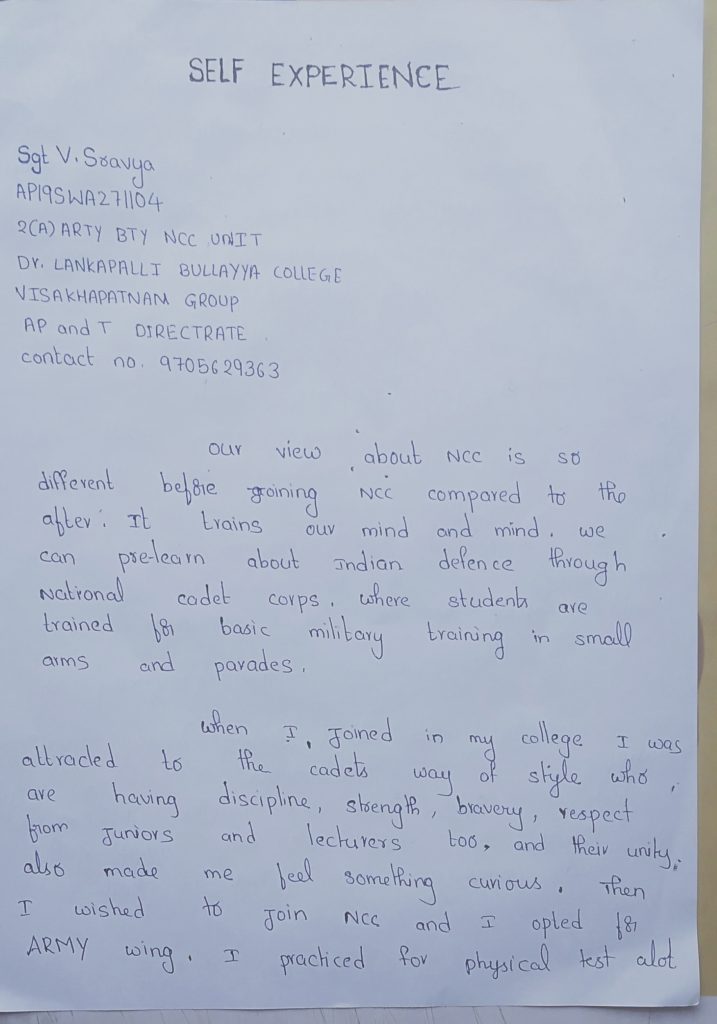 SELF EXPERIENCE
Sgt V. Sravya
AP19SWA271104
2(A) ARTY BTY NCC UNIT
Dr. LANKAPALLI BULLAYYA COLLEGE
VISAKHAPATNAM GROUP
AP and T DIRECTRATE
contact no. 9705629363
our view about NCC is so
different before joining NCC compared to the
after. It trains our mind and mind. we
can pre-learn about Indian defence through
National cadet corps. where students are
trained for basic military training in small
arms and parades.
when I, Joined in my college I was
attracted to the cadets way of style who
are having discipline, strength, bravery, respect
from Juniors and lecturers too, and their unity.
also made me feel something curious. Then
I wished to Join NCC and I opted for
ARMY wing. I practiced for physical test alot